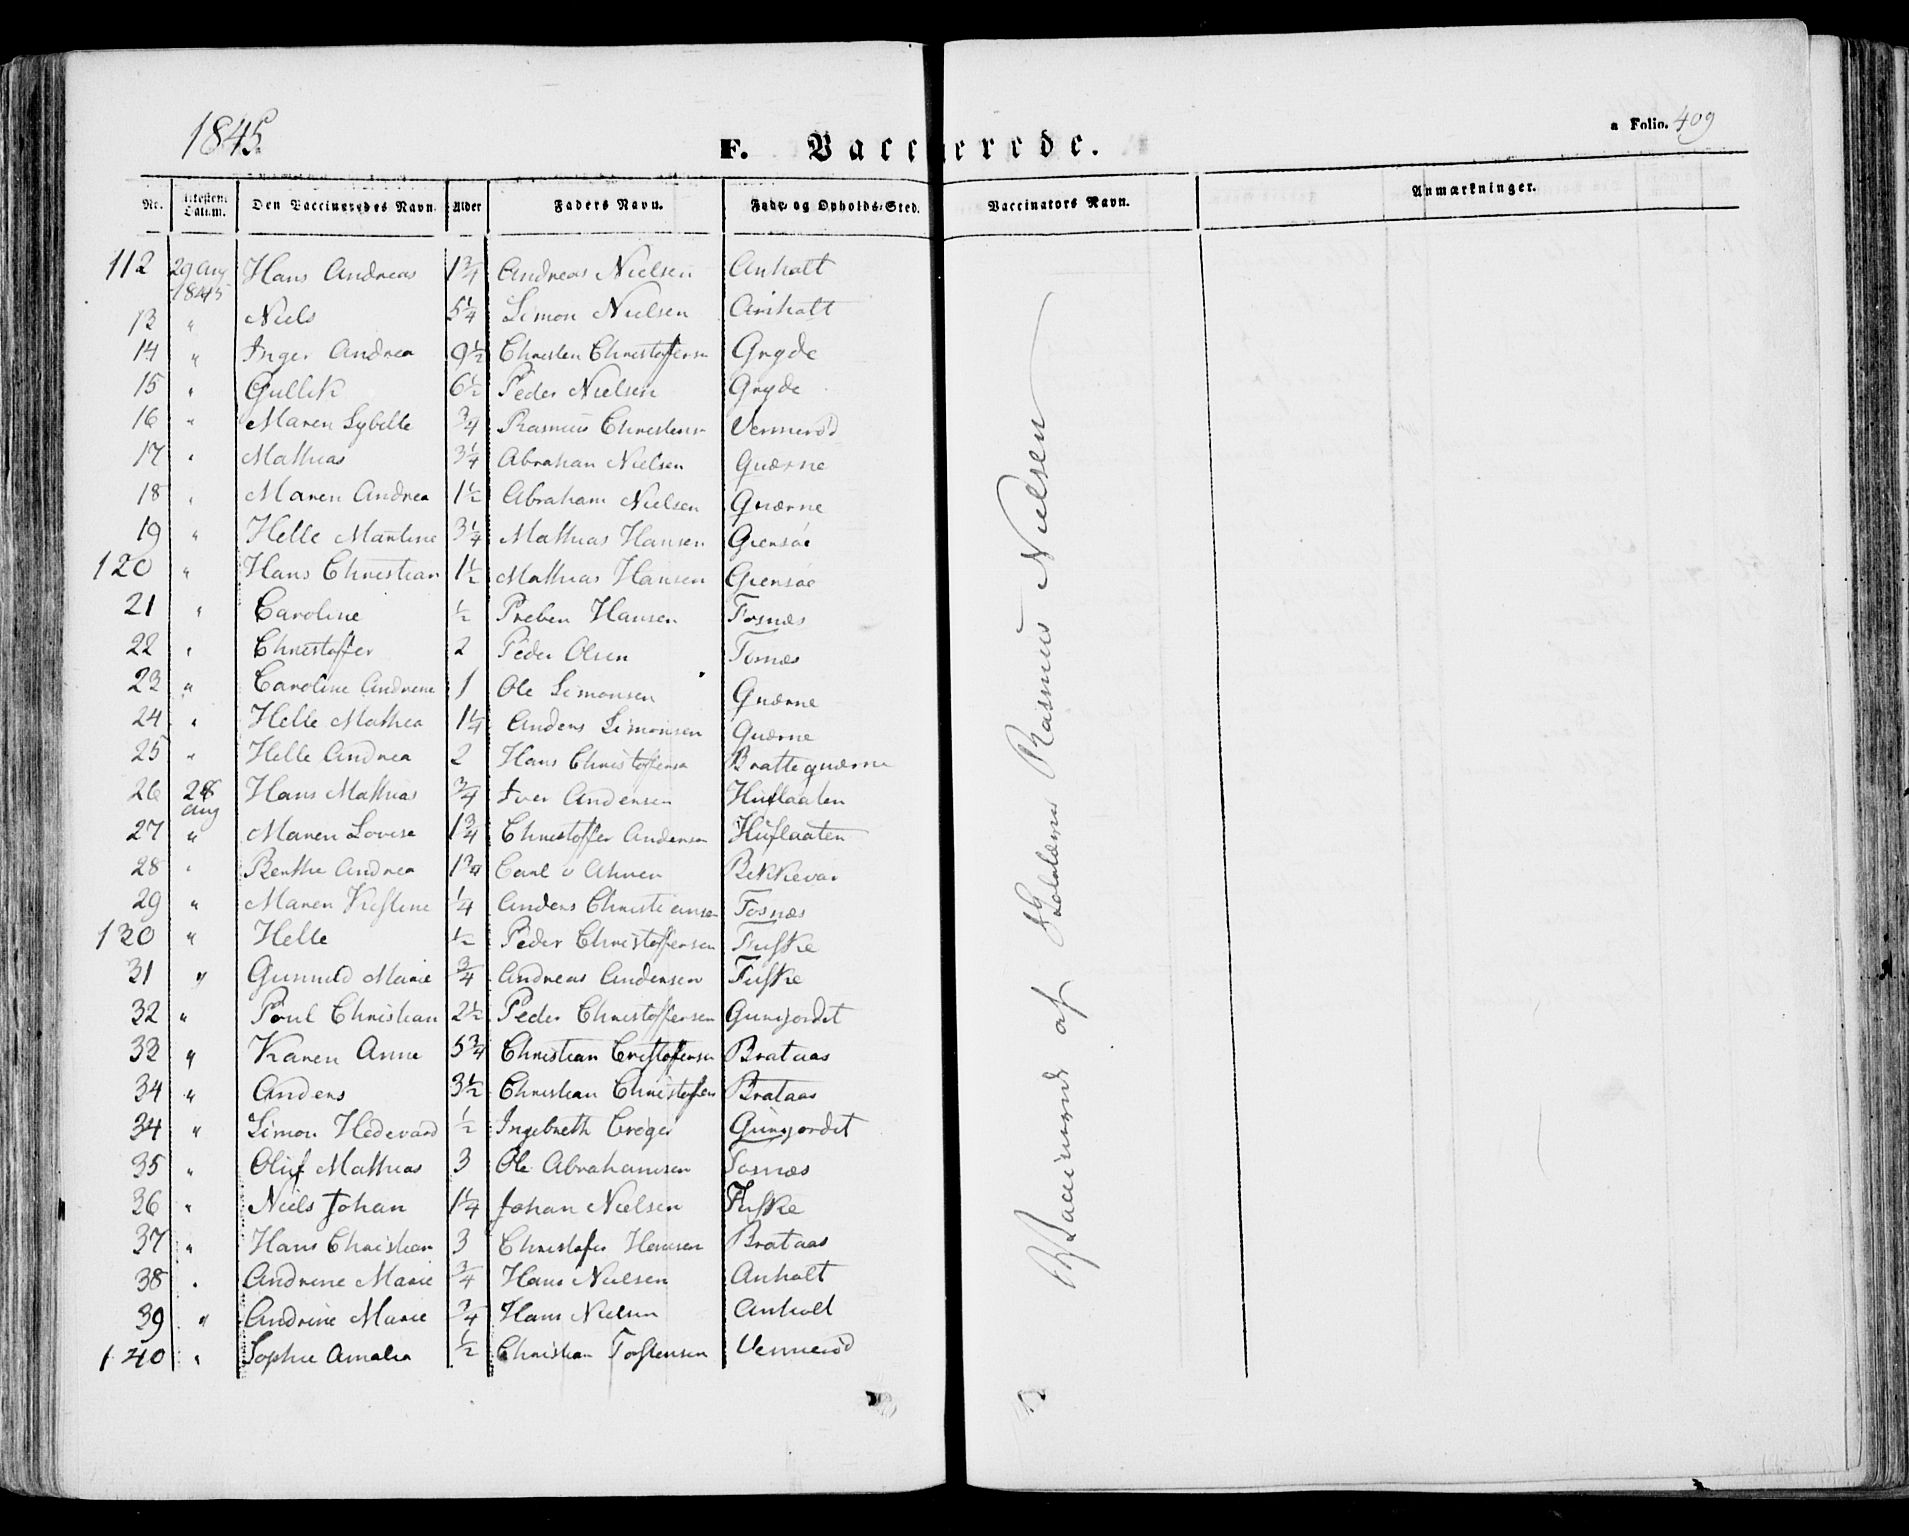 1845.
F. Vaccinerede.
a Folio. 409
Nr. Attestens Datum. Den Vaccineredes Navn. Alder Faders Navn. Føde- og Opholds-Sted. Vaccinators Navn. Anmærkninger.
112 29 Aug 1845 Hans Andreas 1 3/4 Andreas Nielsen Anholt
13 " Niels 5 1/4 Simon Nielsen Anholt
14 " Inger Andrea 9 1/2 Christen Christoffersen Gryde
15 " Gullik 6 1/2 Peder Nielsen Gryde
16 " Maren Sybille 3/4 Rasmus Christens Vermerød
17 " Mathias 3 1/4 Abraham Nielsen Quærne
18 " Maren Andrea 1 1/2 Abraham Nielsen Quærne
19 " Helle Martine 3 1/4 Mathias Hansen Giensøe
120 " Hans Christian 1 1/2 Mathias Hansen Giensøe
21 " Caroline 1/2 Preben Hansen Fosnæs
22 " Christoffer 2 Peder Olsen Fosnæs
23 " Caroline Andrene 1 Ole Simonsen Quærne
24 " Helle Mathea 1 1/4 Anders Simonsen Quærne
25 " Helle Andrea 2 Hans Christoffersen Brattequærne
26 28 Aug Hans Mathias 3/4 Iver Andersen Huflaaten
27 " Maren Lovise 1 3/4 Christoffer Andersen Huflaaten
28 " Berthe Andrea 1 3/4 Carl v Ahnen Bekkevar
29 " Maren Kistine 1/4 Anders Christiansen Fosnæs
130 " Helle 1/2 Peder Christoffersen Fuske
31 " Gunnild Marie 3/4 Andreas Andersen Fuske
32 " Poul Christian 2 1/2 Peder Christoffersen Gunjordet
33 " Karen Anne 5 3/4 Christian Cristoffersen Brataas
34 " Anders 3 1/2 Christian Christoffers Brataas
34 " Simon Hedevard 1/2 Ingebreth Creger Gunjordet
35 " Oluf Mathias 3 Ole Abrahamsen Fosnæs
36 " Niels Johan 1 1/4 Johan Nielsen Fuske
37 " Hans Christian 3 Christofer Hansen Brataas
38 " Andrine Marie 3/4 Hans Nielsen Anholt
39 " Andrine Marie 3/4 Hans Nielsen Anholt
140 " Sophie Amalia 1/2 Christian Tostensen Vermerød
Vaccinerede af Rasmus Nielsen